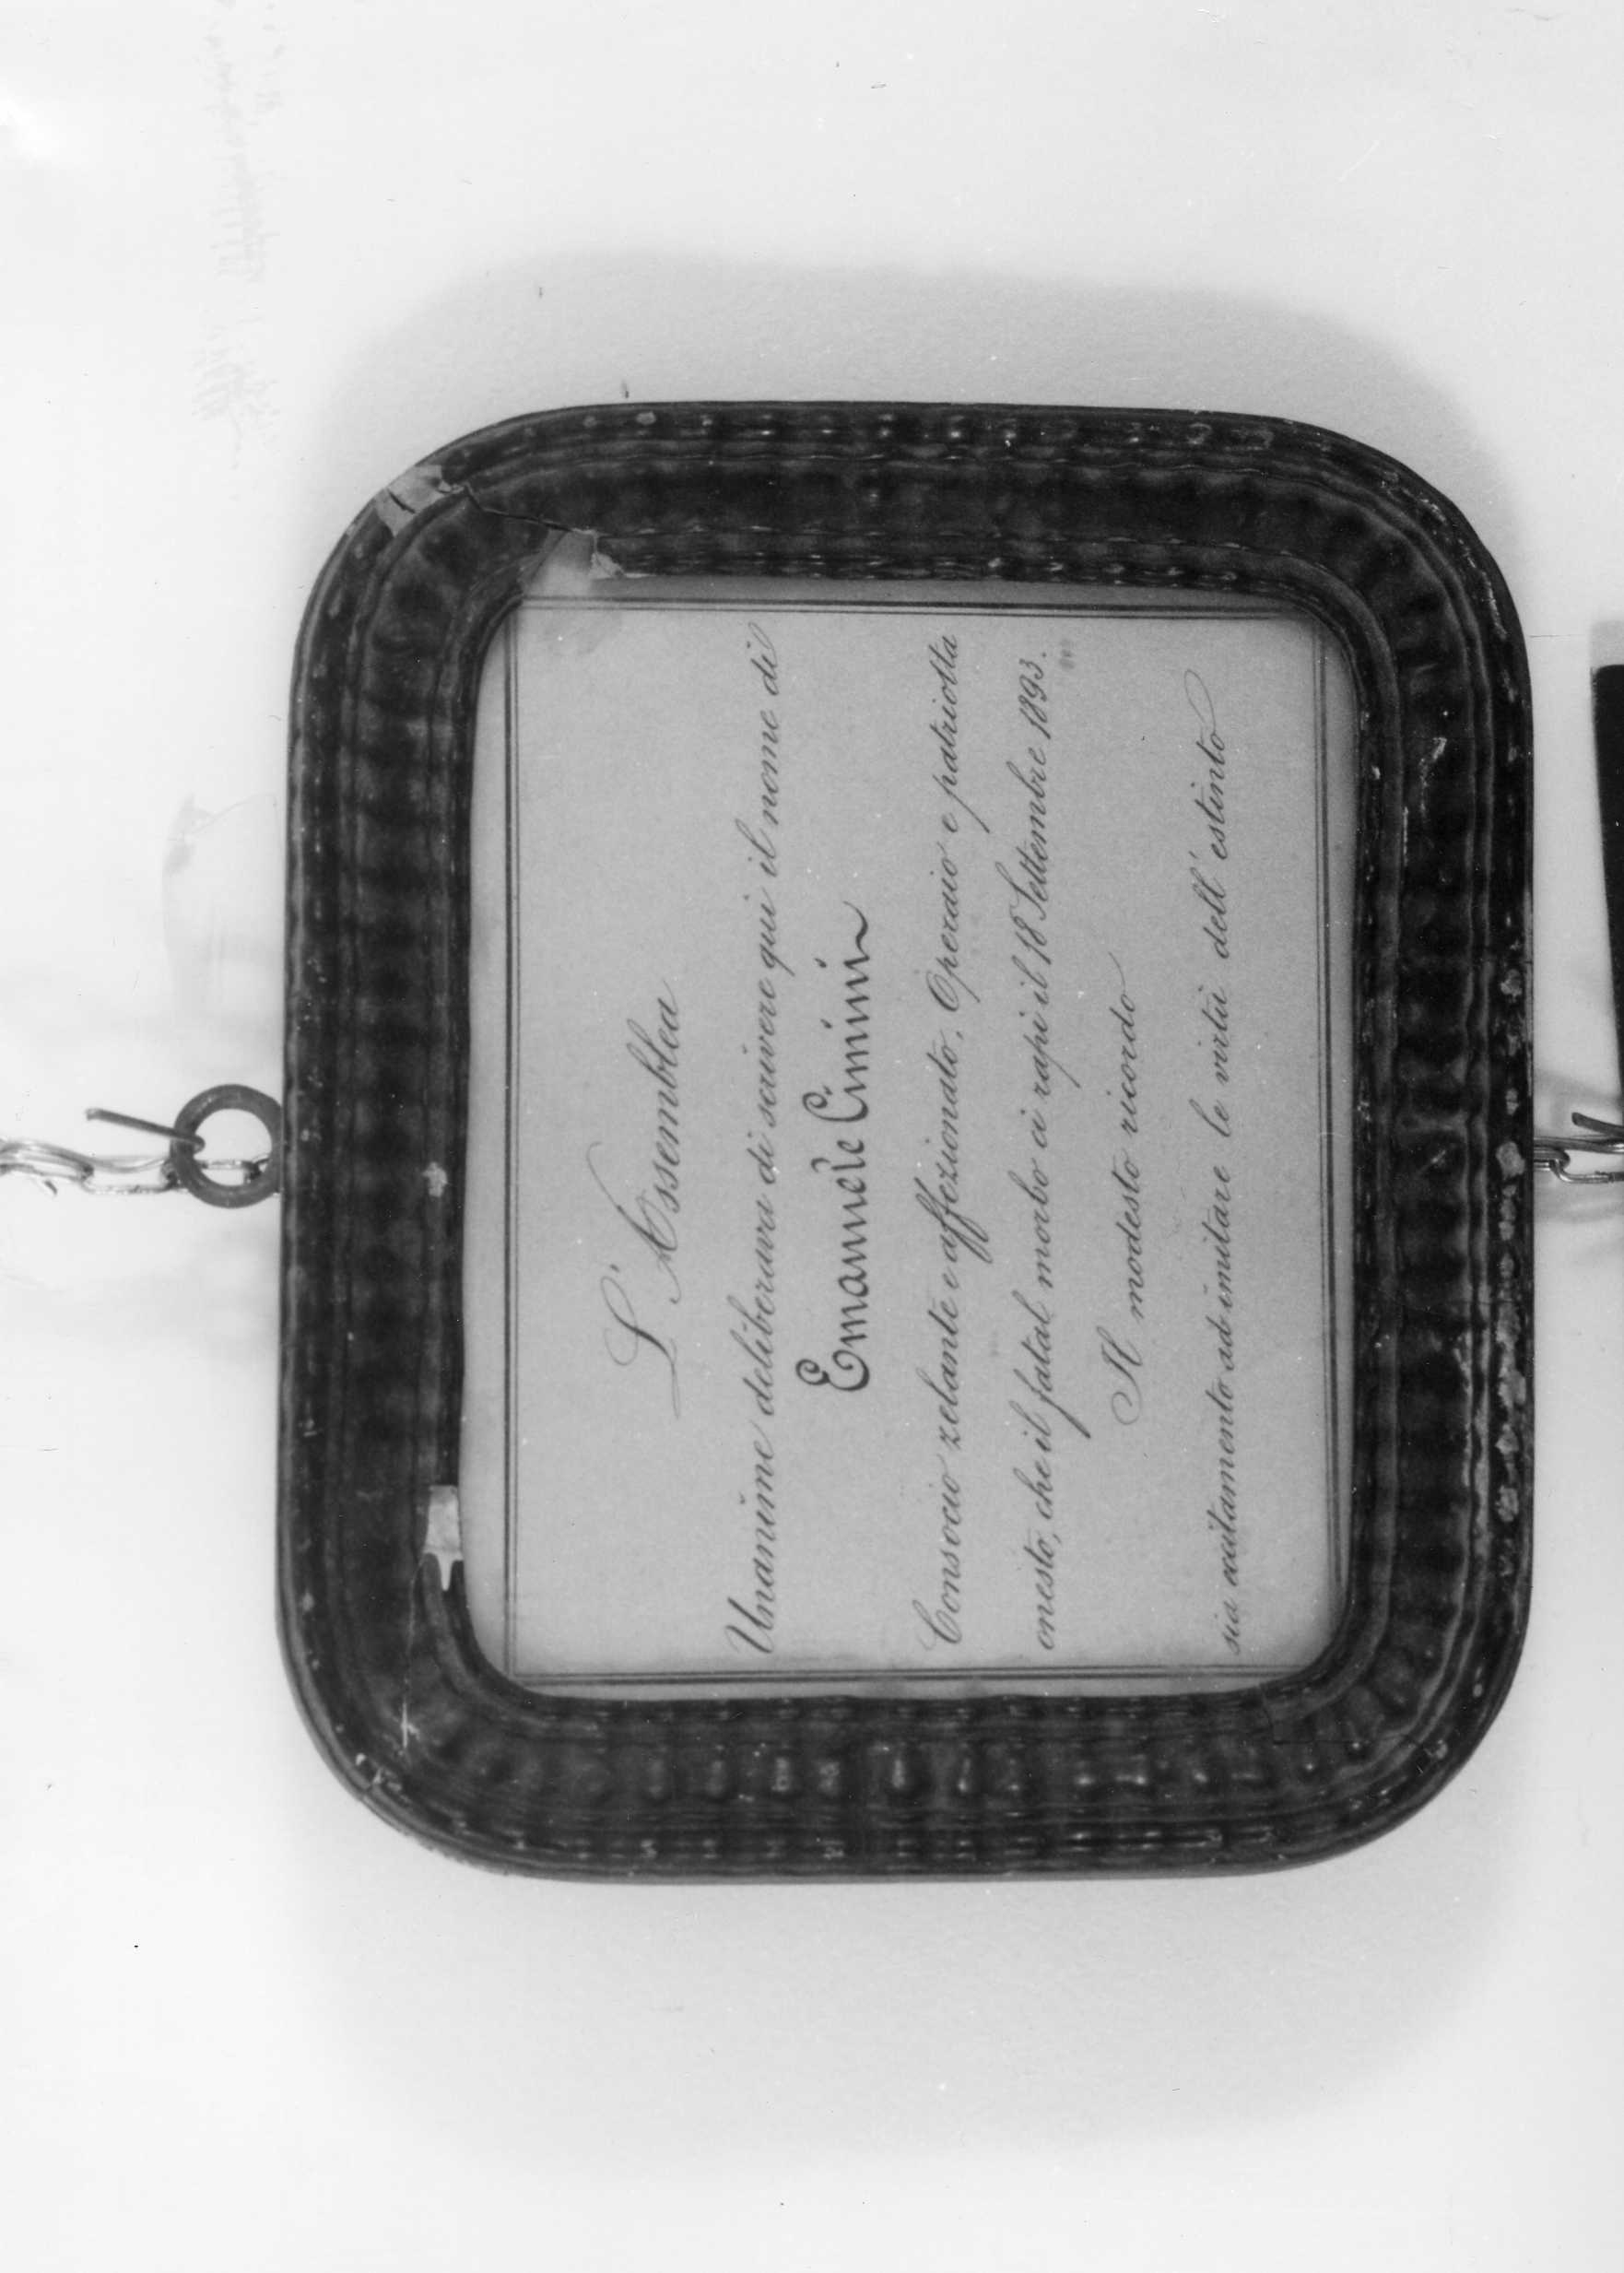 L'Assemblea
Unanime deliberava di scrivere qui il nome di
Emanuele Cimini
Consocio zelante e affezionato, Operaio e patriotta
onesto, che il fatal morbo ci rapì il 18 Settembre 1893.
Il modesto ricordo
sia eccitamento ad imitare le virtù dell'estinto